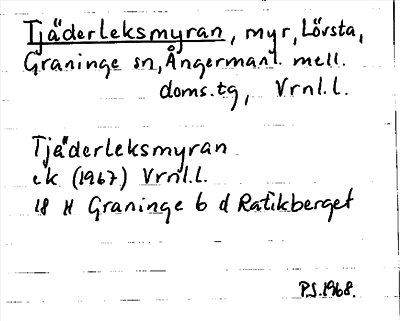 Tjäderleksmyran, myr, Lövsta,
Graninge sn, Ångermanl. mell.
doms.tg, Vrnl.l.
Tjäderleksmyran
ek (1967) Vrnl.l.
18 H Graninge b d Ratikberget
P.S. 1968.